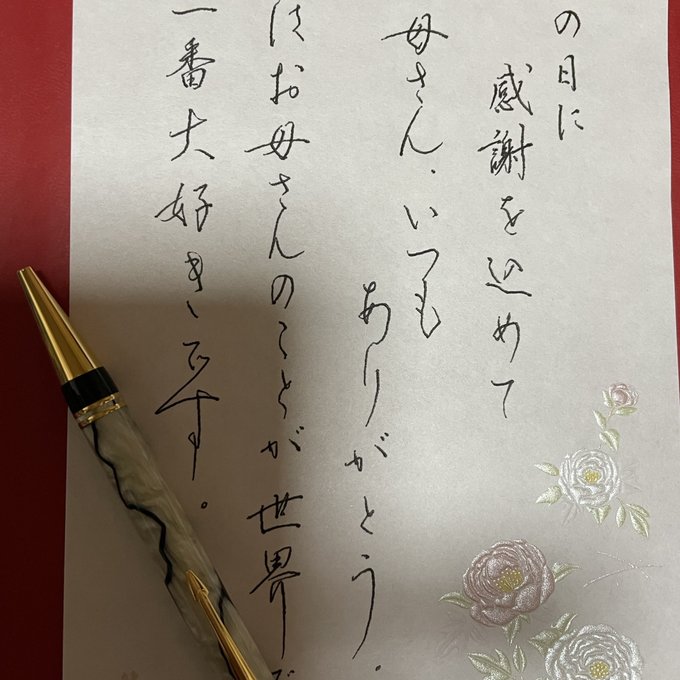 の日に
感謝を込めて
母さん、いつも
ありがとう。
はお母さんのことが世界で
一番大好きです。